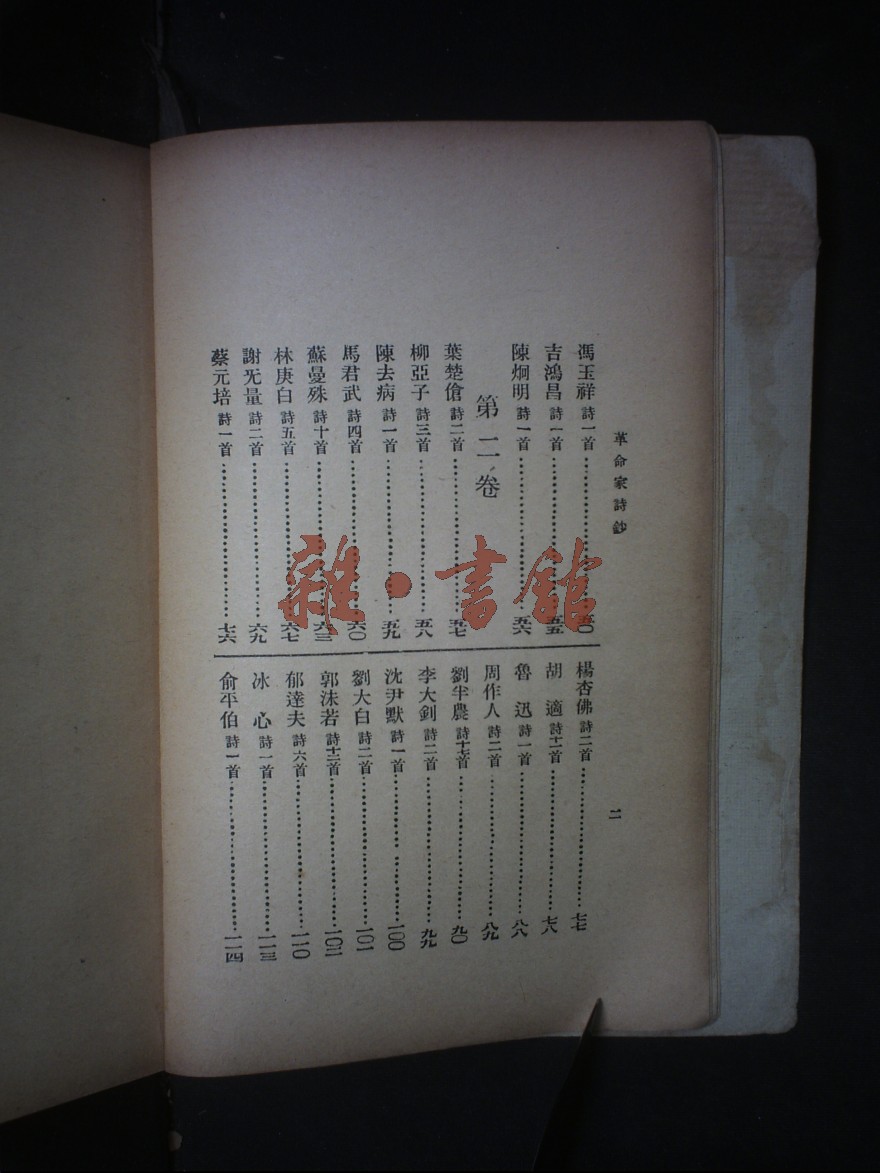 革命家詩鈔
二
馮玉祥 詩一首 五〇
吉鴻昌 詩一首 五五
陳炯明 詩一首 五六
第二卷
葉楚傖 詩二首 五七
柳亞子 詩三首 五八
陳去病 詩一首 五九
馬君武 詩四首 六〇
蘇曼殊 詩十首 六三
林庚白 詩五首 六七
謝旡量 詩二首 六九
蔡元培 詩一首 七六
楊杏佛 詩二首 七七
胡適 詩十一首 七八
魯迅 詩一首 八八
周作人 詩二首 八九
劉半農 詩十七首 九〇
李大釗 詩二首 九九
沈尹默 詩一首 一〇〇
劉大白 詩二首 一〇一
郭沫若 詩十二首 一〇二
郁達夫 詩六首 一一〇
冰心 詩一首 一一三
俞平伯 詩一首 一一四
雜·書館